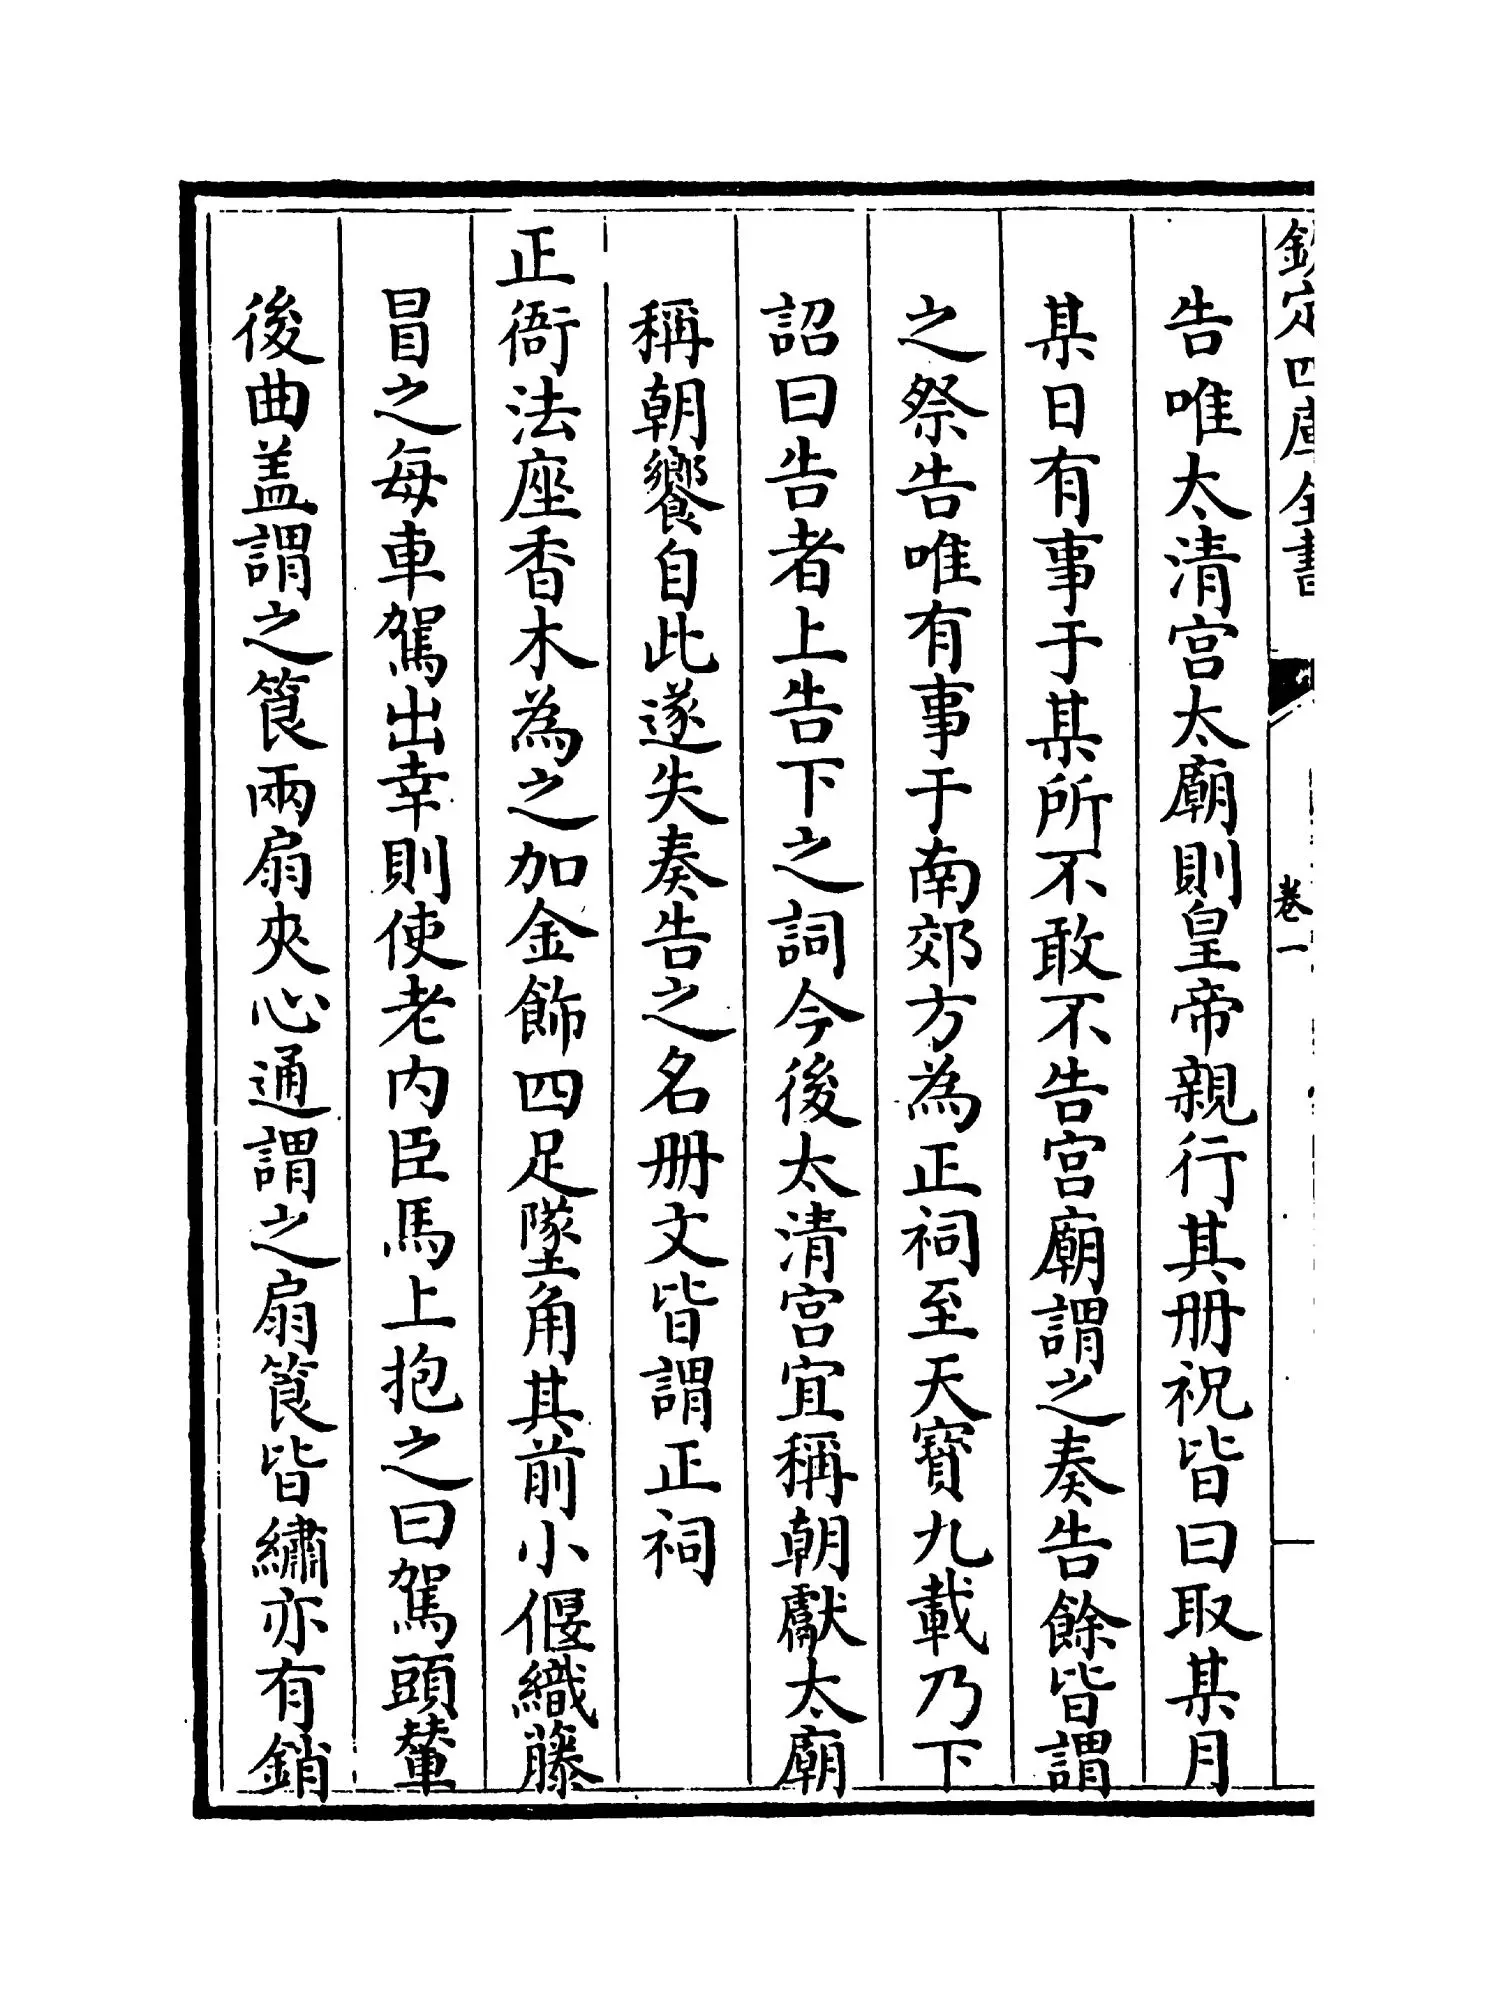 欽定四庫全書
卷一
告唯太清宫太廟則皇帝親行其册祝皆曰取某月
某日有事于某所不敢不告宫廟謂之奏告餘皆謂
之祭告唯有事于南郊方為正祠至天寳九載乃下
詔曰告者上告下之詞今後太清宫宜稱朝獻太廟
稱朝饗自此遂失奏告之名册文皆謂正祠
正衙法座香木為之加金飾四足墜角其前小偃織藤
冒之每車駕出幸則使老内臣馬上抱之曰駕頭輦
後曲盖謂之筤兩扇夾心通謂之扇筤皆繡亦有銷